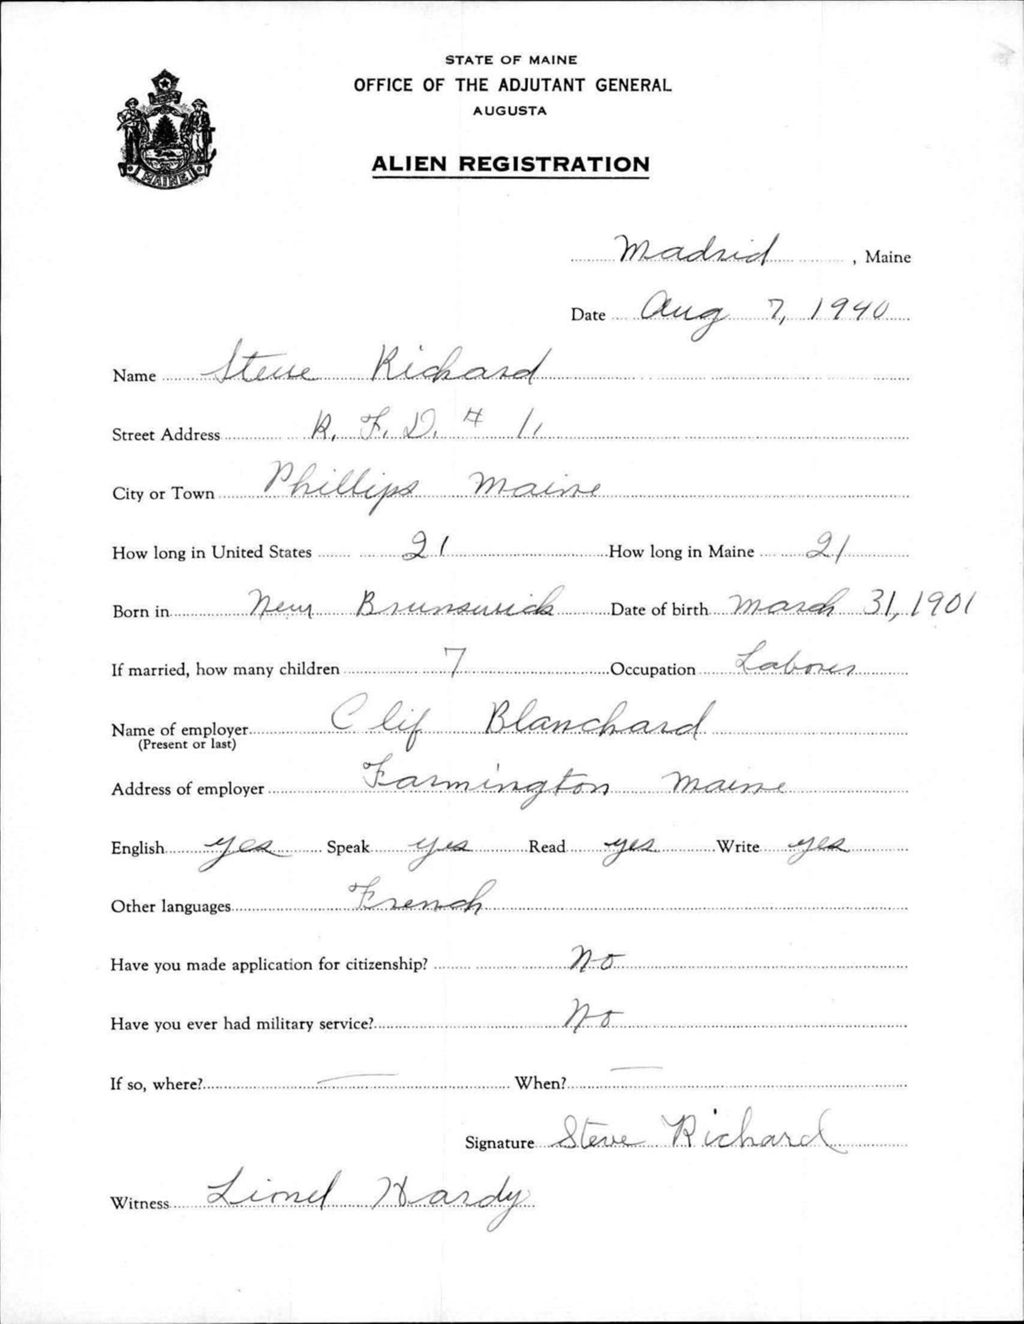 STATE OF MAINE
OFFICE OF THE ADJUTANT GENERAL
AUGUSTA
MAINE
ALIEN REGISTRATION
Madrid, Maine
Date Aug 7, 1940
Name Steve Richard
Street Address R. F. D. # 1,
City or Town Phillips Maine
How long in United States 21 How long in Maine 21
Born in New Brunswick Date of birth March 31, 1901
If married, how many children 7 Occupation Laborer
Name of employer Clif Blanchard
(Present or last)
Address of employer Farmington Maine
English yes Speak yes Read yes Write yes
Other languages French
Have you made application for citizenship? No
Have you ever had military service? No
If so, where? — When? —
Signature Steve Richard
Witness Lionel Hardy